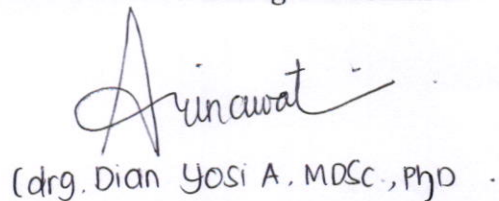 Arinawati
(drg. Dian Yosi A, MDSc., PhD .